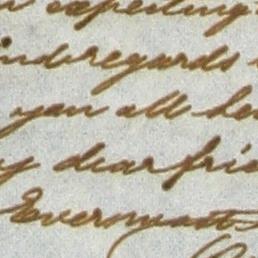 expecting
ind regards
you all he
y dear frie
Ever most